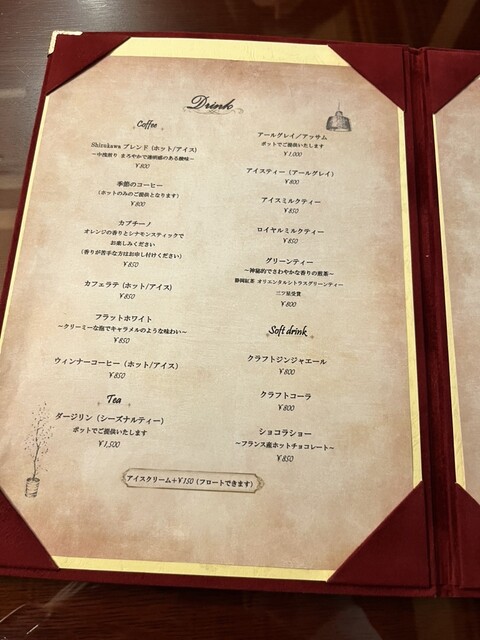 Drink
Coffee
Shirakawa ブレンド (ホット/アイス)
～中焙煎り まろやかで透明感のある酸味～
¥800
季節のコーヒー
(ホットのみのご提供となります)
¥800
カプチーノ
オレンジの香りとシナモンスティックで
お楽しみください
(香りが苦手な方はお申し付けください)
¥850
カフェラテ (ホット/アイス)
¥850
フラットホワイト
～クリーミーな泡でキャラメルのような味わい～
¥850
ウィンナーコーヒー (ホット/アイス)
¥850
Tea
ダージリン (シーズナルティー)
ポットでご提供いたします
¥1,500
アールグレイ／アッサム
ポットでご提供いたします
¥1,000
アイスティー (アールグレイ)
¥800
アイスミルクティー
¥850
ロイヤルミルクティー
¥850
グリーンティー
～神秘的でさわやかな香りの煎茶～
静岡紅茶 オリエンタルシトラスグリーンティー
三ツ星受賞
¥800
Soft drink
クラフトジンジャエール
¥800
クラフトコーラ
¥800
ショコラショー
～フランス産ホットチョコレート～
¥850
アイスクリーム+¥150 (フロートできます)